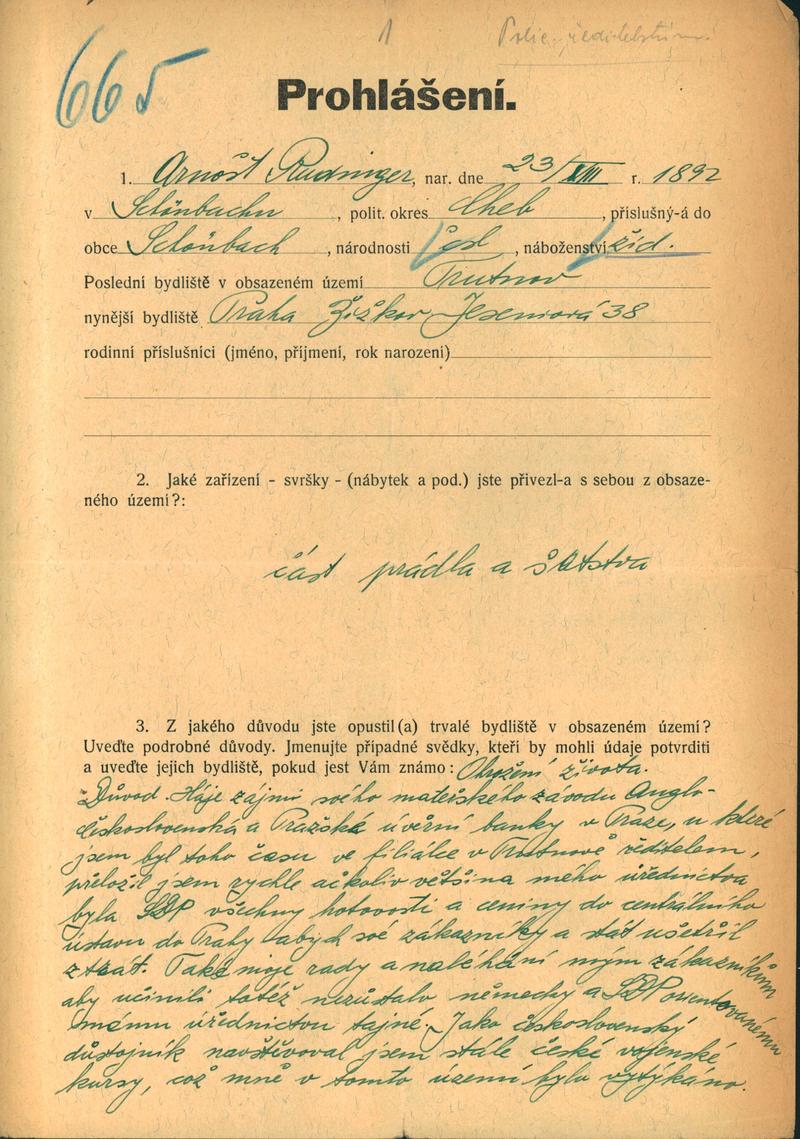 665
1
Polic. ředitelství
Prohlášení.
1. Arnošt Rudinger, nar. dne 23/XIII r. 1892
v Schönbachu, polit. okres Cheb, příslušný-á do
obce Schönbach, národnosti čsl, náboženství žid.
Poslední bydliště v obsazeném území Trutnov
nynější bydliště Praha Žižkov Jeseniova 38
rodinní příslušníci (jméno, příjmení, rok narození)
2. Jaké zařízení - svršky - (nábytek a pod.) jste přivezl-a s sebou z obsaze-
ného území?:
část prádla a šatstva
3. Z jakého důvodu jste opustil(a) trvalé bydliště v obsazeném území?
Uveďte podrobné důvody. Jmenujte případné svědky, kteří by mohli údaje potvrditi
a uveďte jejich bydliště, pokud jest Vám známo: Ohrožení života.
Důvod. Háje zájmi svého mateřského závodu Anglo-
československá a Pražská úvěrní banky v Praze, u které
jsem byl toho času ve filiálce v Trutnově ředitelem,
přeložil jsem rychle ačkoliv většina mého úřednictva
byla SDP všechny hotovosti a ceniny do centrálního
ústavu do Prahy abych své zákazníky a stát ušetřil
ztrát. Také moje rady a naléhání mým zákazníkům
aby učinili totéž nezůstalo německy a SDP orientovanému
mému úřednictvu tajné. Jako československý
důstojník navštěvoval jsem stále české vojenské
kursy, což mně v tomto území bylo vytýkáno.